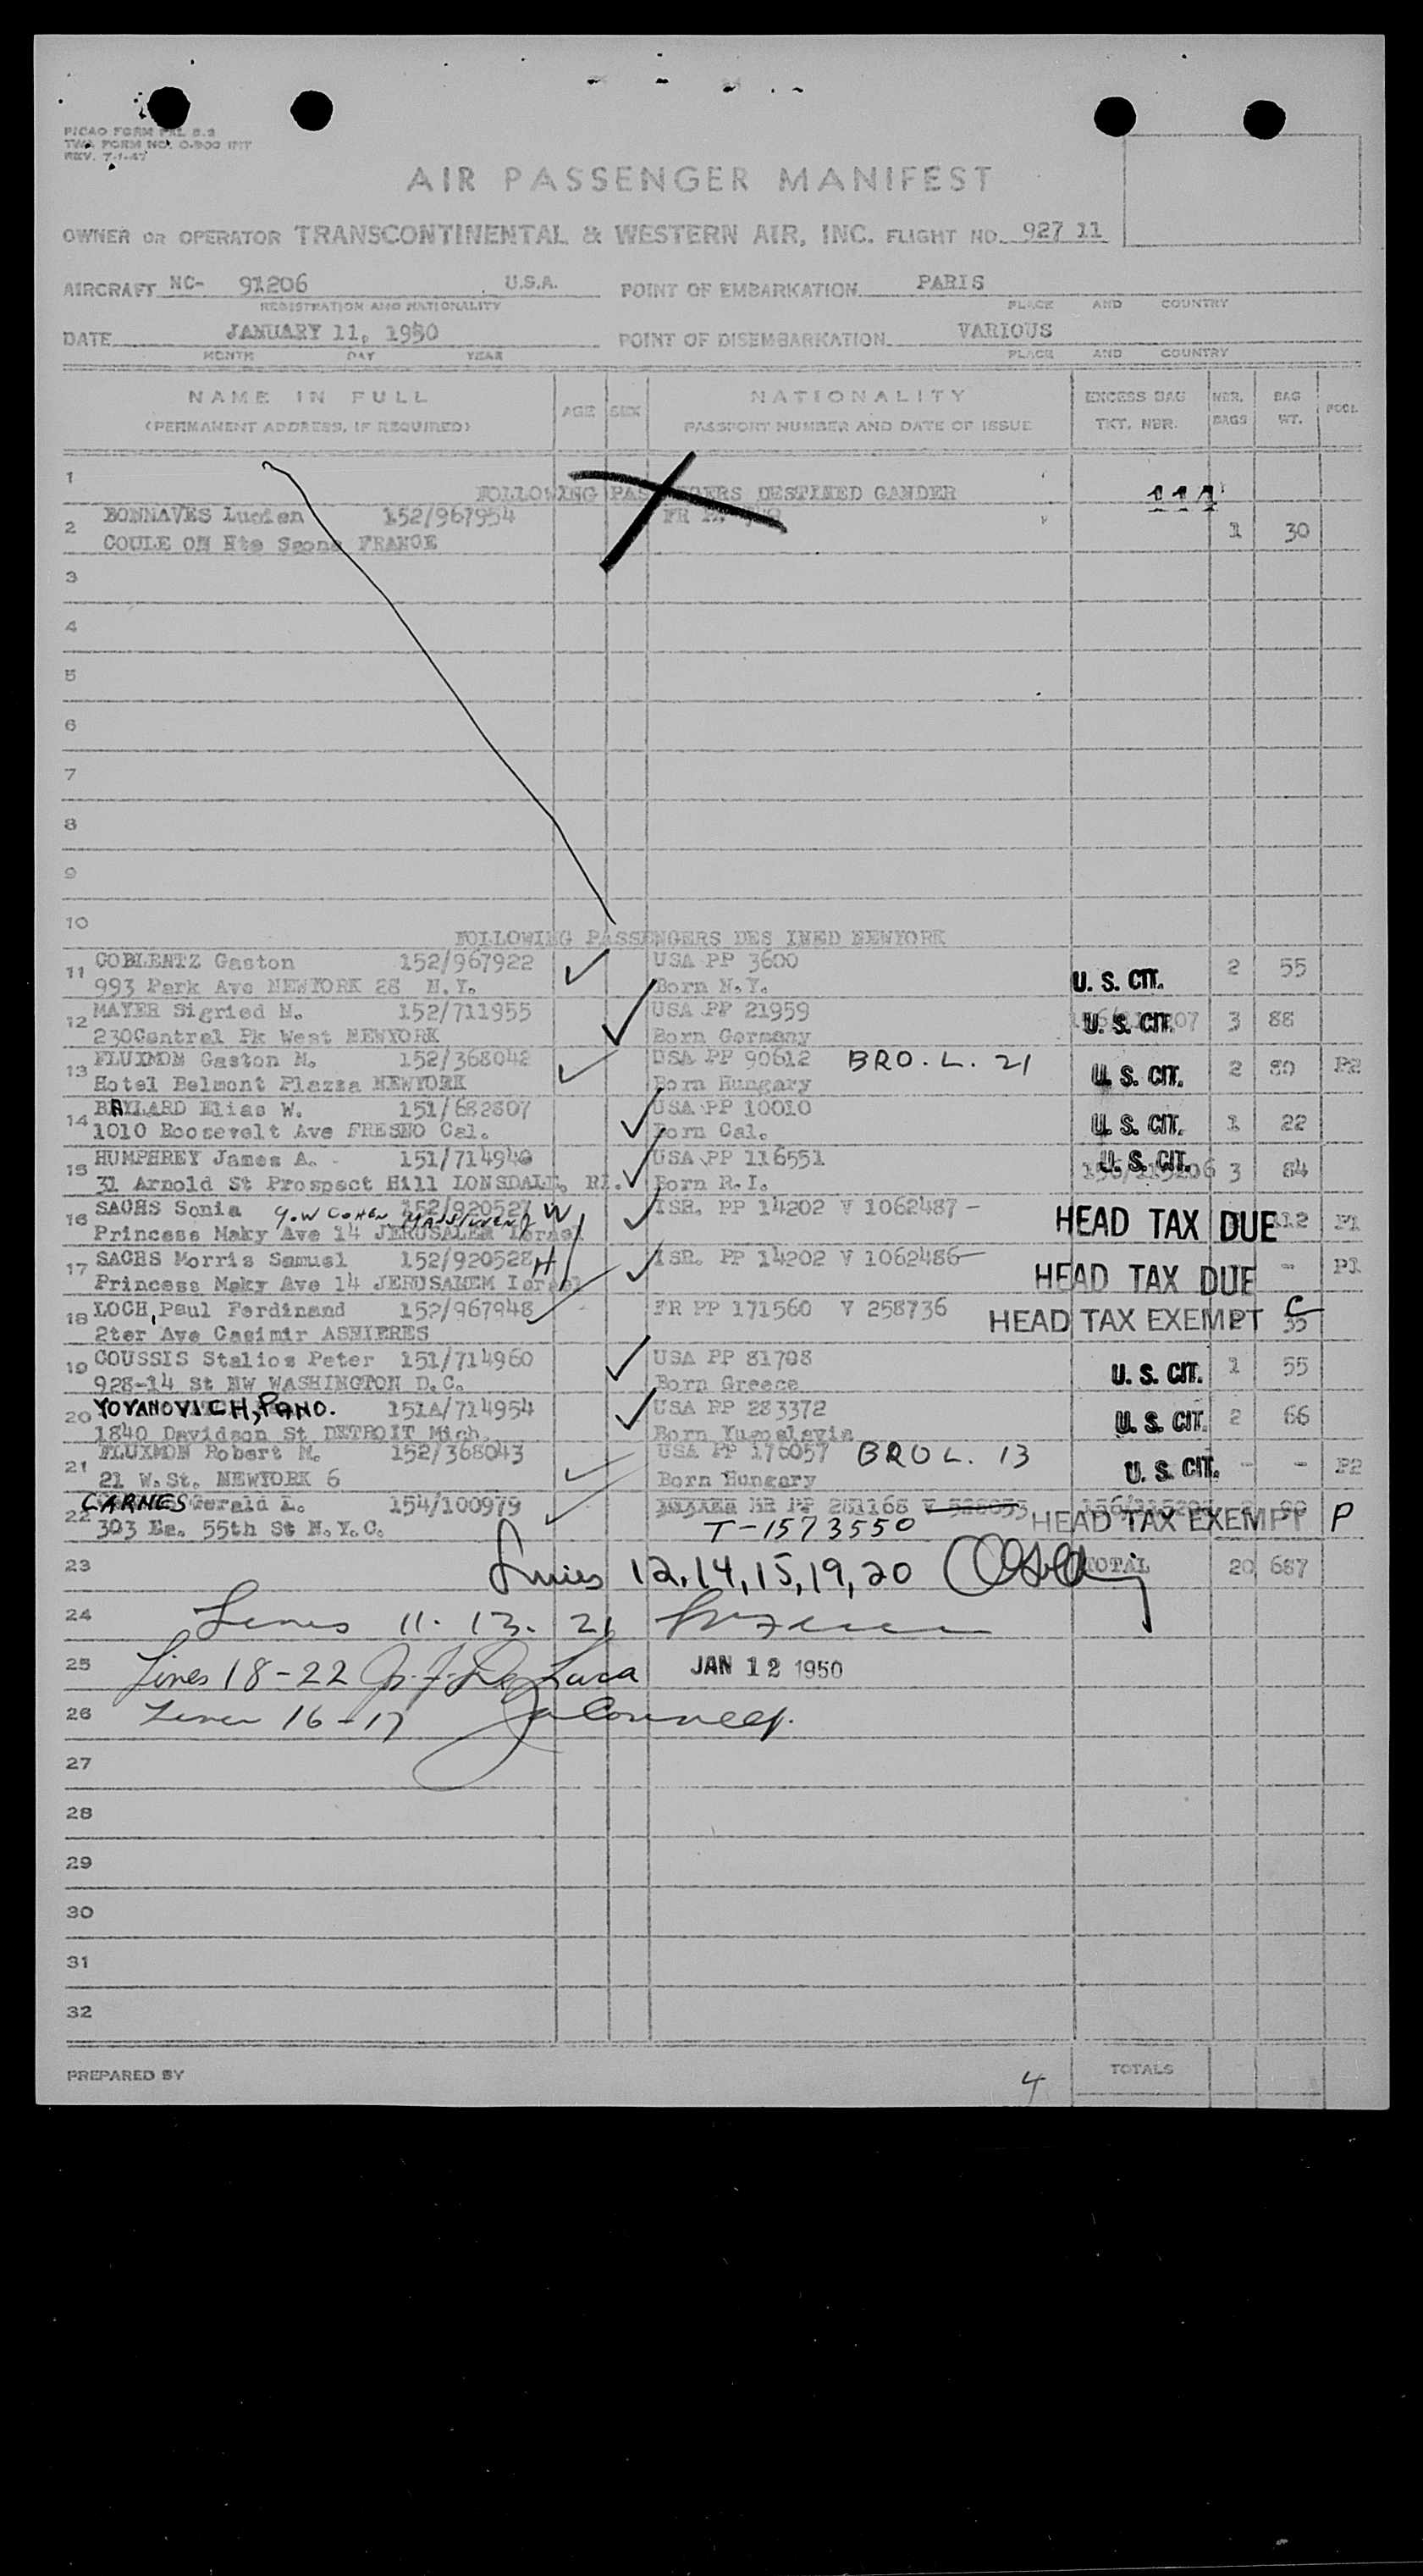 PICAO FORM PAL 8.2
TWA FORM NO. O-900 INT
REV. 7-1-47
AIR PASSENGER MANIFEST
OWNER OR OPERATOR TRANSCONTINENTAL & WESTERN AIR, INC. FLIGHT NO. 927 11
AIRCRAFT NC- 91206 U.S.A. POINT OF EMBARKATION PARIS
REGISTRATION AND NATIONALITY PLACE AND COUNTRY
DATE JANUARY 11, 1950 POINT OF DISEMBARKATION VARIOUS
MONTH DAY YEAR PLACE AND COUNTRY
NAME IN FULL AGE SEX NATIONALITY EXCESS BAG NBR. BAG POOL
(PERMANENT ADDRESS, IF REQUIRED) PASSPORT NUMBER AND DATE OF ISSUE TKT. NBR. BAGS WT.
1 FOLLOWING PASSENGERS DESTINED GANDER 111
2 BONNAVES Lucien 152/967954 FR PP 1 30
COULE ON Hte Saone FRANCE
3
4
5
6
7
8
9
10 FOLLOWING PASSENGERS DES INED NEWYORK
11 COBLENTZ Gaston 152/967922 USA PP 3600 U. S. CIT. 2 55
993 Park Ave NEWYORK 28 N.Y. Born N.Y.
12 MAYER Sigried H. 152/711955 USA PP 21959 U. S. CIT. 3 88
230Central Pk West NEWYORK Born Germany
13 FLUXMON Gaston M. 152/368042 USA PP 90612 BRO. L. 21 U. S. CIT. 2 80 P2
Hotel Belmont Plazza NEWYORK Born Hungary
14 BAYLARD Elias W. 151/682807 USA PP 10010 U. S. CIT. 1 22
1010 Roosevelt Ave FRESNO Cal. Born Cal.
15 HUMPHREY James A. 151/714940 USA PP 116551 U. S. CIT. 156/115206 3 84
31 Arnold St Prospect Hill LONSDALE, RI. Born R.I.
16 SACHS Sonia 152/920527 W ISR. PP 14202 V 1062487 - HEAD TAX DUE 112 P1
Princess Maky Ave 14 JERUSALEM Israel
17 SACHS Morris Samuel 152/920528 H ISR. PP 14202 V 1062486 HEAD TAX DUE - P1
Princess Maky Ave 14 JERUSAHEM Israel
18 LOCH, Paul Ferdinand 152/967948 FR PP 171560 V 258736 HEAD TAX EXEMPT C 35
2ter Ave Casimir ASNIERES
19 COUSSIS Stalios Peter 151/714960 USA PP 81708 U. S. CIT. 1 55
928-14 St NW WASHINGTON D.C. Born Greece
20 YOVANOVICH, PANO. 151A/714954 USA PP 283372 U. S. CIT. 2 66
1840 Davidson St DETROIT Mich. Born Yugoslavia
21 FLUXMON Robert M. 152/368043 USA PP 176057 BRO L. 13 U. S. CIT. - - P2
21 W.St. NEWYORK 6 Born Hungary
22 CARNES Gerald L. 154/100979 PP 281168 HEAD TAX EXEMPT P
303 Ea. 55th St N.Y.C. T-1573550
23 Lines 12, 14, 15, 19, 20 TOTAL 20 687
24 Lines 11. 13. 21
25 Lines 18-22 JAN 12 1950
26 Lines 16-17
27
28
29
30
31
32
PREPARED BY 4 TOTALS